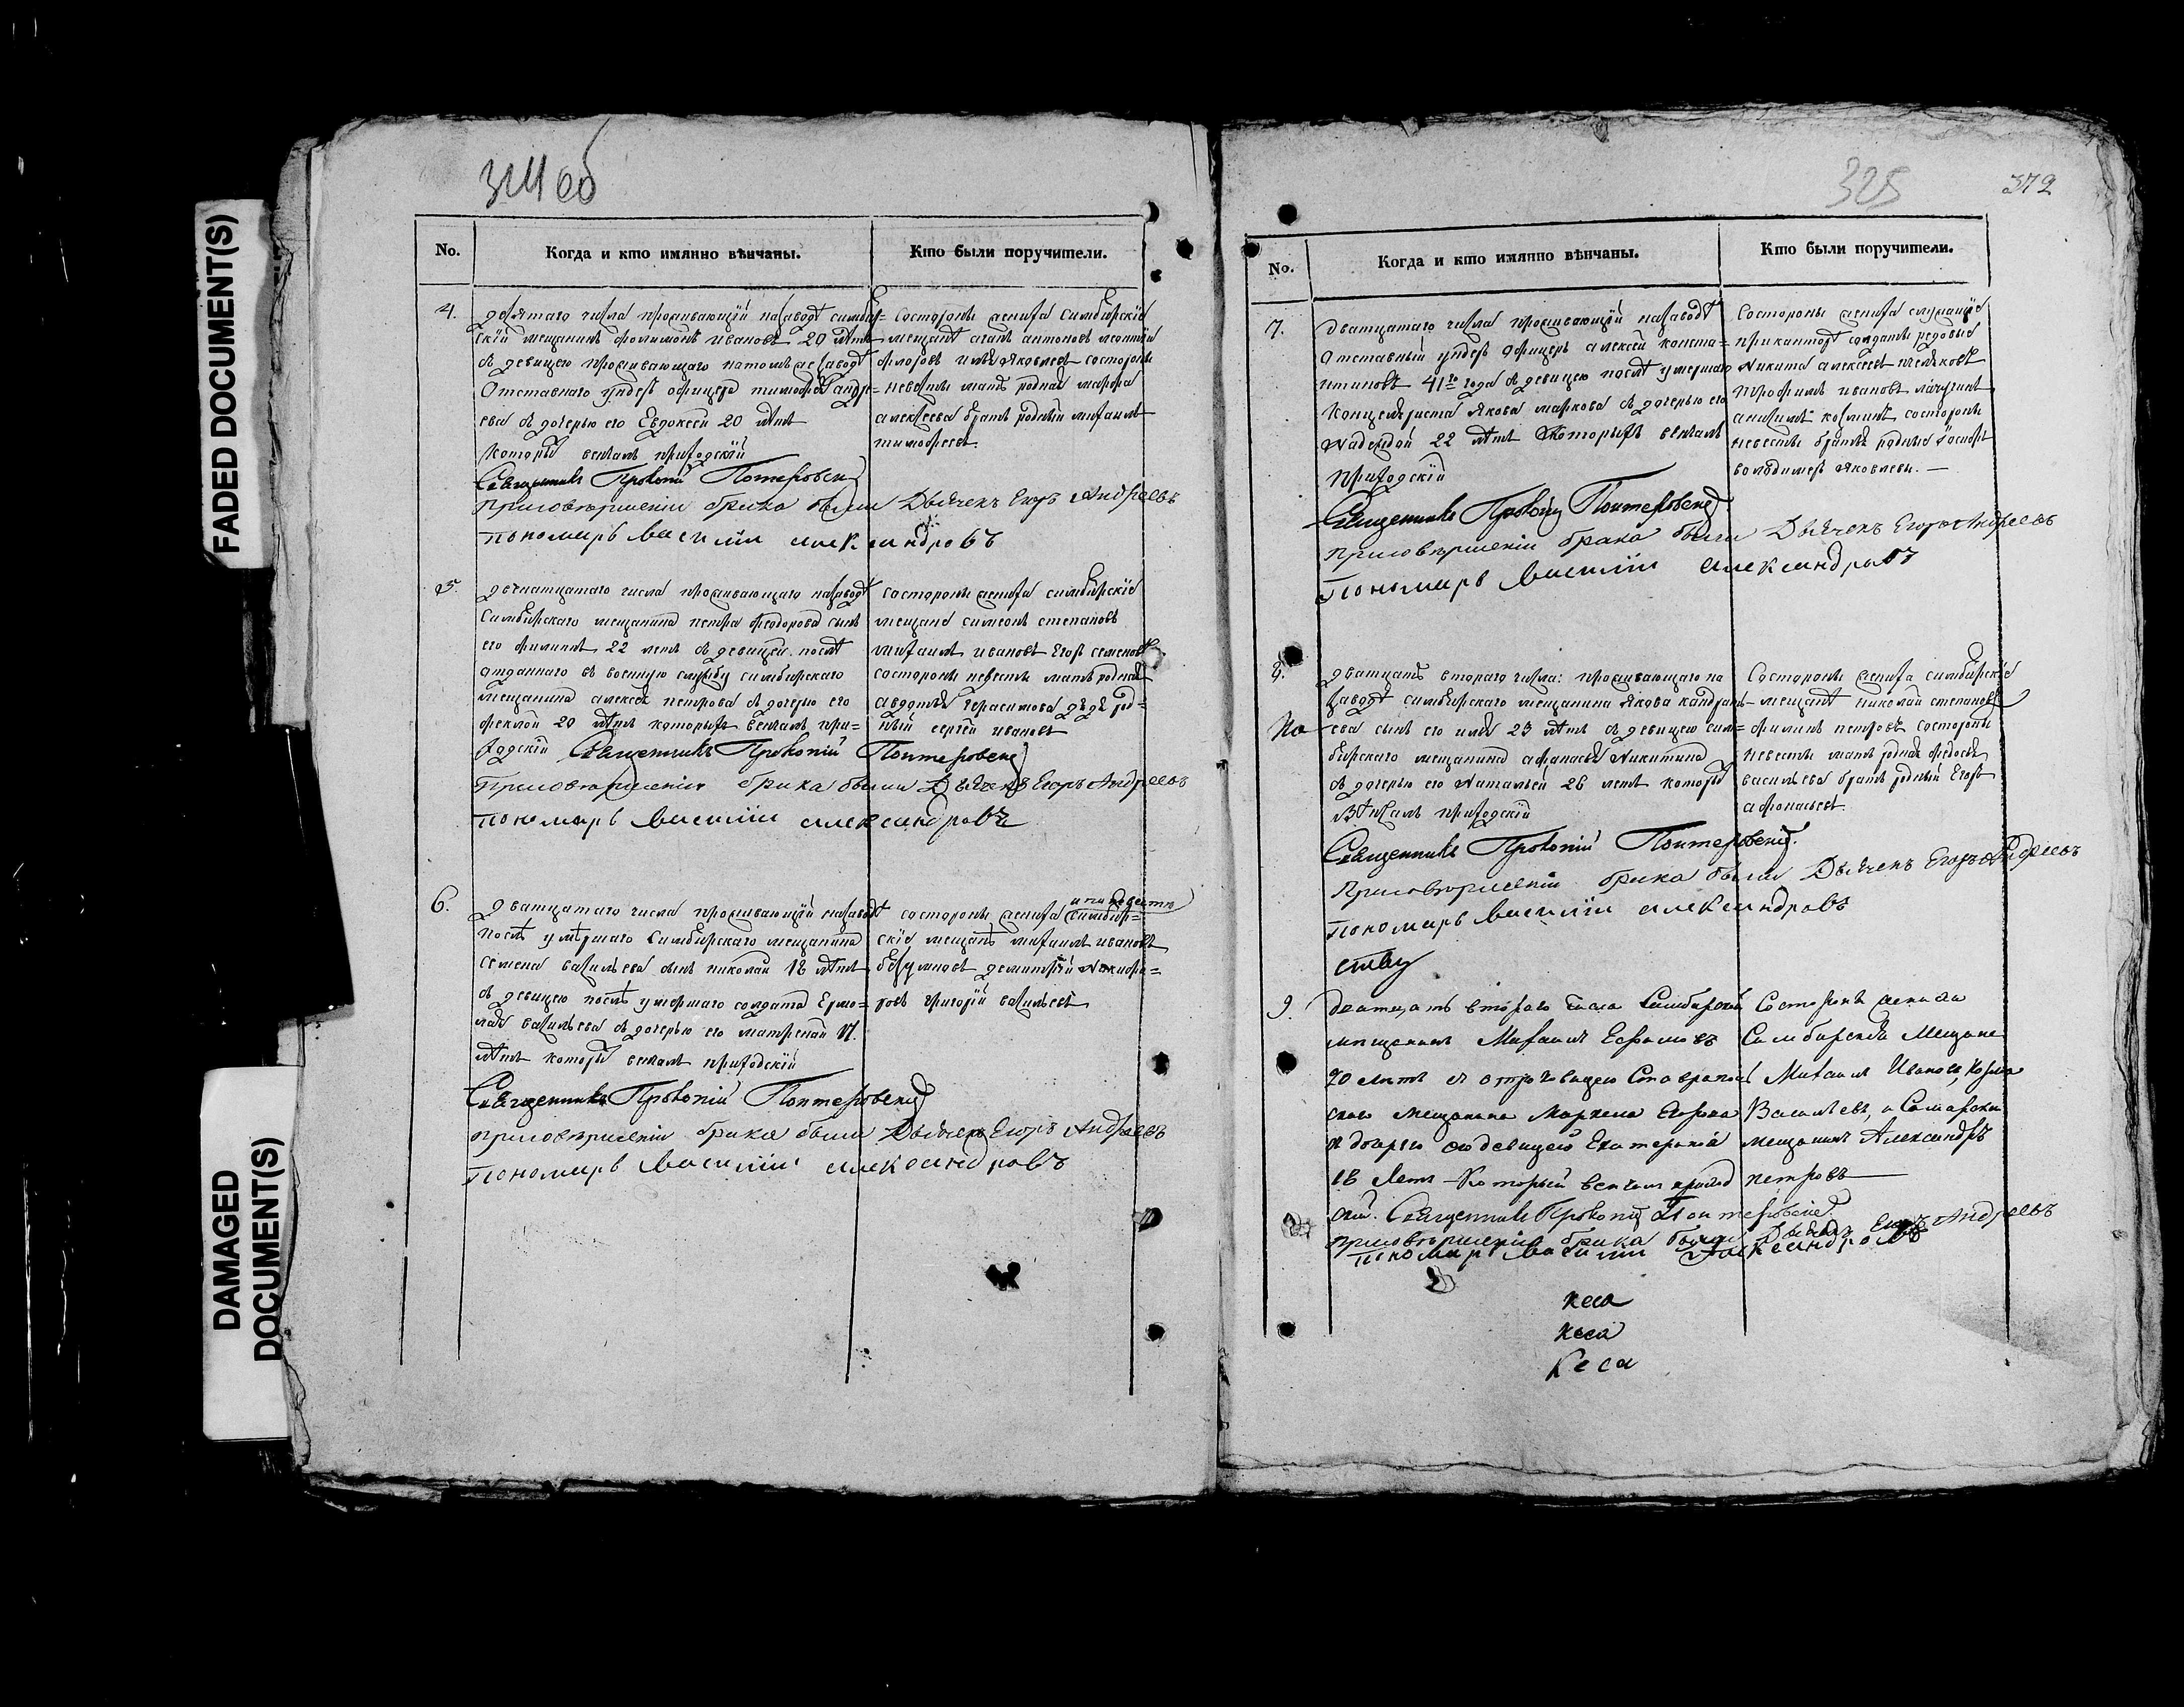 FADED DOCUMENT(S)
DAMAGED
DOCUMENT(S)
324 об
No. Когда и кто имянно вѣнчаны. Кто были поручители.
4. девятаго числа проживающїй назаводѣ симбир=
скїй мещанинъ филимонъ ивановъ 20 лѣтъ
съ девицею проживающаго натомъ же заводѣ
Отставнаго ундеръ офицера тимофея андре=
ева съ дочерью его Евдокеей 20 лѣтъ
которыхъ венчалъ приходскїй
Священникъ Прокопїй
присовершенїи брака были Дьячекъ Егоръ Андреевъ
пономарь Василїи александровъ
состороны жениха Симбирскїе
мещане
состороны
невесты мать родная марфа
алексеева братъ родный михаилъ
тимофеевъ
5. двенатцатаго числа проживающаго назаводѣ
Симбирскаго мещанина петра феодорова сынъ
его филиппъ 22 летъ съ девицей послѣ
отданнаго въ военную службу симбирскаго
мещанина алексея петрова съ дочерью его
феклой 20 лѣтъ которыхъ венчалъ при=
ходскїй Священникъ Прокопїй
присовершенїи брака были Дьячекъ Егоръ Андреевъ
пономарь Василїи александровъ
состороны жениха симбирскїе
мещане симеонъ степановъ
михаилъ ивановъ Егоръ семеновъ
состороны невесты мать родная
авдотья герасимова дядя род=
ный сергей ивановъ
6. дватцатаго числа проживающїй назаводѣ
послѣ умѣршаго Симбирскаго мещанина
семена васильева сынъ николай 18 лѣтъ
съ девицею послѣ умершаго солдата Ермо=
лая васильева съ дочерью его матреной 17.
лѣтъ которыхъ венчалъ приходскїй
Священникъ Прокопїй
присовершенїи брака были Дьячекъ Егоръ Андреевъ
пономарь Василїи александровъ
и по невѣстѣ
состороны жениха симбир=
скїе мещане михаилъ ивановъ
димитрїй никифо=
ровъ григорїй васильевъ
325 372
No. Когда и кто имянно вѣнчаны. Кто были поручители.
7. дватцатаго числа проживающїй назаводѣ
Отставный ундеръ офицеръ алексей конста=
нтиновъ 41го года съ девицею послѣ умершаго
Канцеляриста якова маркова съ дочерью его
надеждой 22 лѣтъ которыхъ венчалъ
приходскїй
Священникъ Прокопїй
присовершенїи брака были Дьячекъ Егоръ Андреевъ
пономарь Василїи александровъ
Состороны жениха служащїе
приканторѣ солдаты редовые
Никита алексеевъ
трофимъ ивановъ
состороны
невесты братья родные
володимеръ яковлевы. —
8. дватцать втораго числа: проживающаго на
заводѣ симбирскаго мещанина якова
ева сынъ его илья 23 лѣтъ съ девицею сим=
бирскаго мещанина афанасья Никитина
съ дочерью его Натальей 26 летъ которыхъ
Вѣнчалъ приходскїй
Священникъ Прокопїй
присовершенїи брака были Дьячекъ Егоръ Андреевъ
пономарь Василїи александровъ
Состороны жениха симбирскїе
мещане николай степановъ
филипъ петровъ состороны
невесты мать родная федосья
васильева братъ родный Егоръ
афонасьевъ.
но
ству
9. дватцать втораго числа Симбирской
мещанинъ Михаилъ Ефремовъ
20 летъ
скаго мещанина Маркела Егорова
девицей Екатериной
18 летъ Который венчалъ приход
ской. Священникъ Прокопїй
присовершенїи брака были Дьячекъ Егоръ Андреевъ
пономарь Василїи Александровъ
Состороны жениха
Симбирскїе Мещане
Михаилъ Ивановъ, Козма
Васильевъ, и Самарской
мещанинъ Александръ
петровъ
кеса
кеса
Кеса